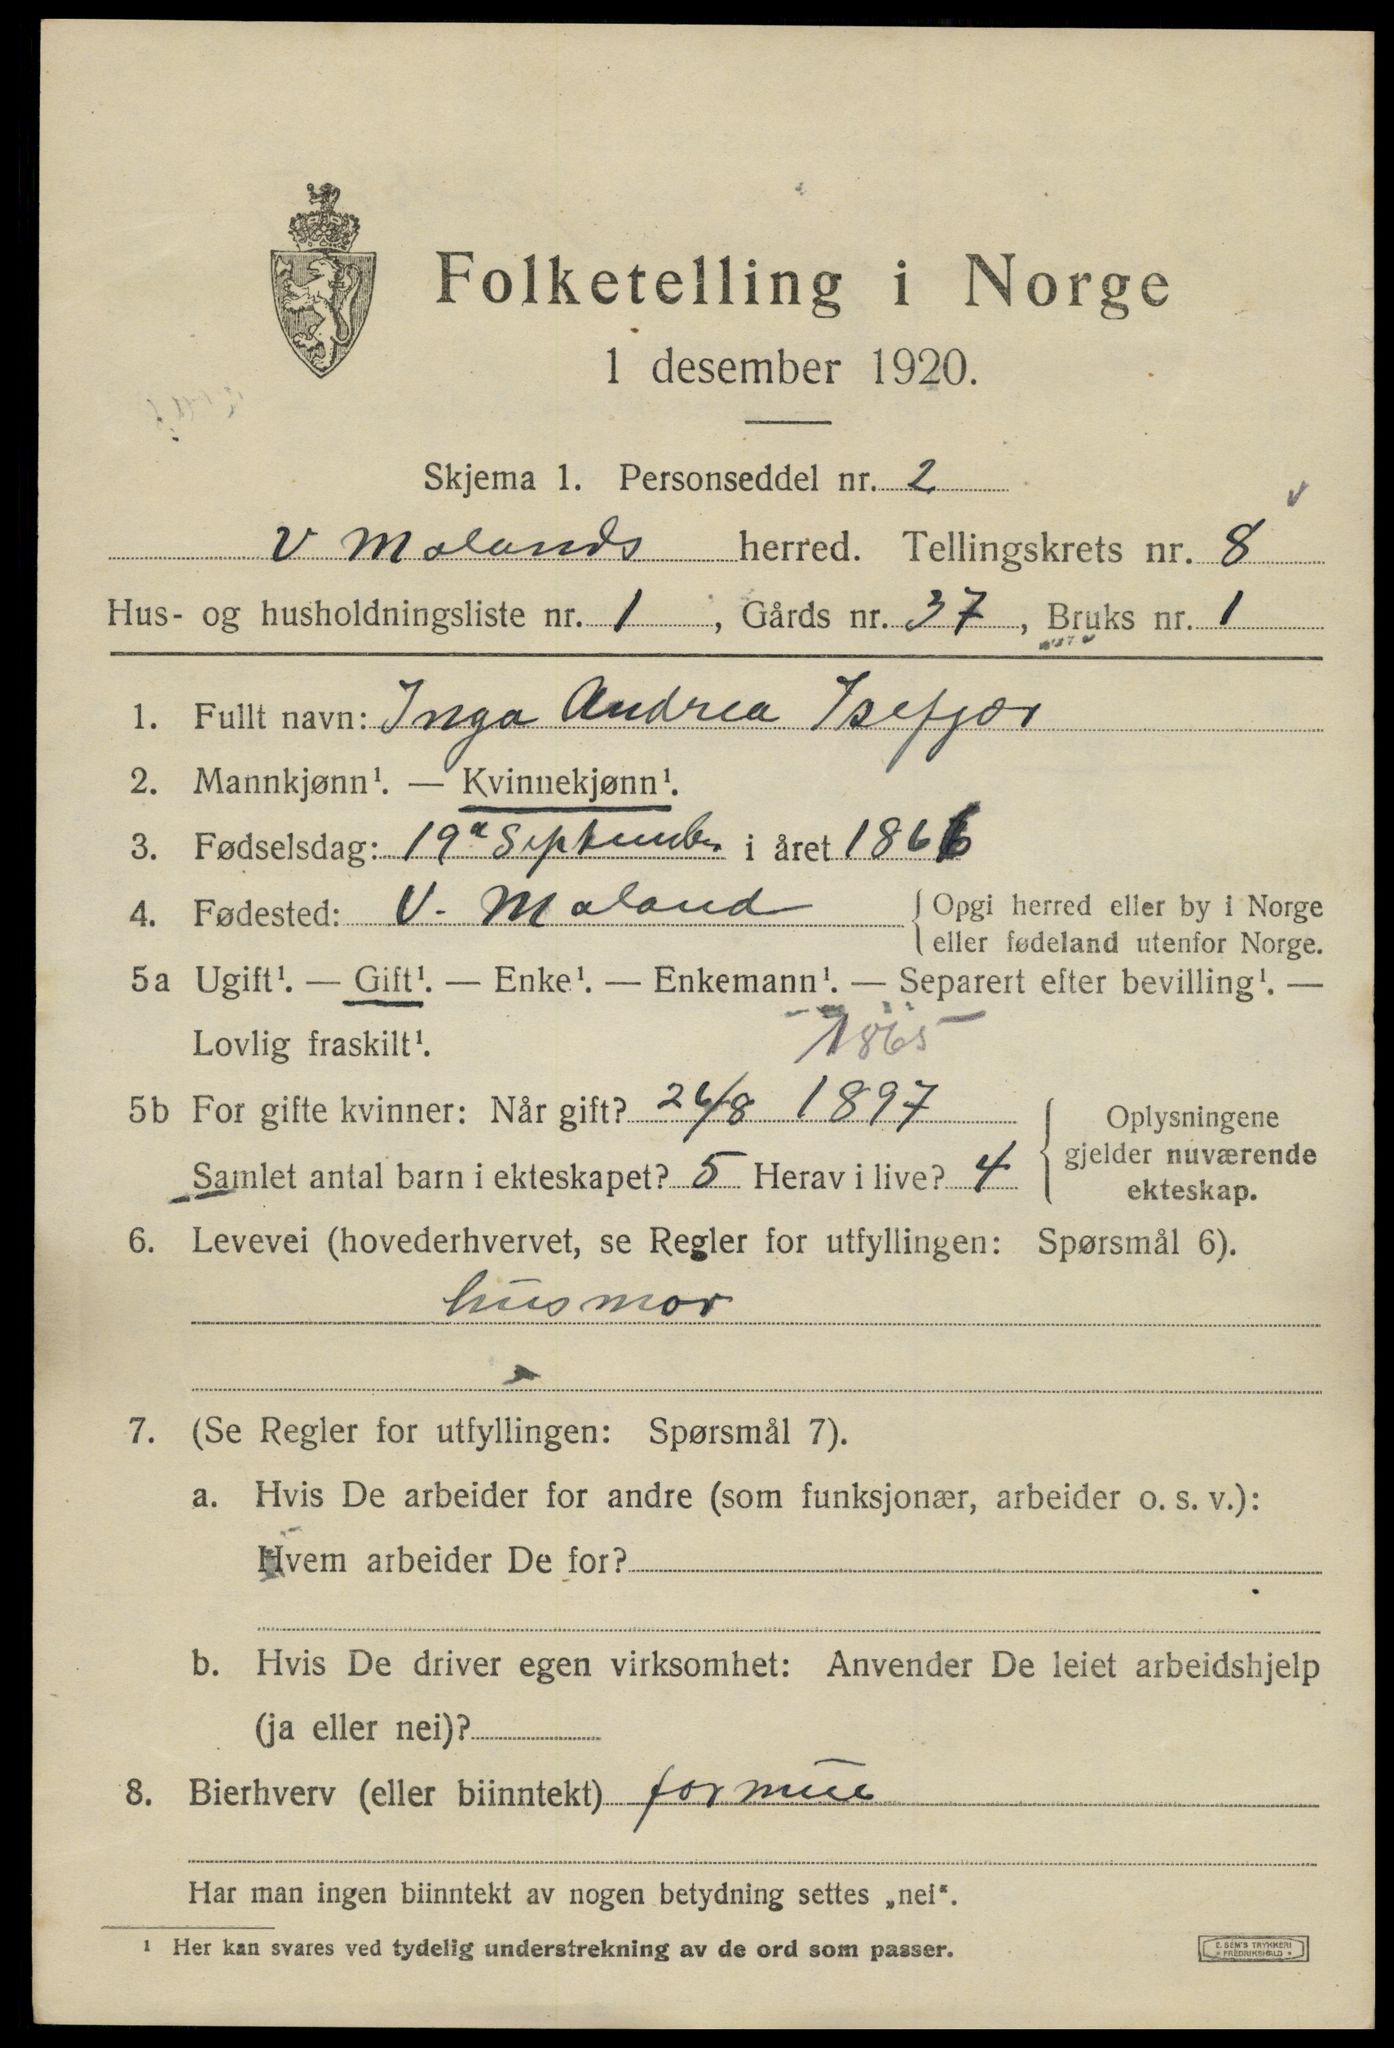 Folketelling i Norge
1 desember 1920.
Skjema 1. Personseddel nr. 2
V Molands herred. Tellingskrets nr. 8
Hus- og husholdningsliste nr. 1, Gårds nr. 37, Bruks nr. 1
1. Fullt navn: Inga Andrea Isefjær
2. Mannkjønn¹. — Kvinnekjønn¹.
3. Fødselsdag: 19de September i året 1866
4. Fødested: V. Moland { Opgi herred eller by i Norge
eller fødeland utenfor Norge.
5a Ugift¹. — Gift¹. — Enke¹. — Enkemann¹. — Separert efter bevilling¹. —
Lovlig fraskilt¹. 1865
5b For gifte kvinner: Når gift? 26/8 1897
Samlet antal barn i ekteskapet? 5 Herav i live? 4
{ Oplysningene
gjelder nuværende
ekteskap.
6. Levevei (hovederhvervet, se Regler for utfyllingen: Spørsmål 6).
husmor
7. (Se Regler for utfyllingen: Spørsmål 7).
a. Hvis De arbeider for andre (som funksjonær, arbeider o. s. v.):
Hvem arbeider De for?
b. Hvis De driver egen virksomhet: Anvender De leiet arbeidshjelp
(ja eller nei)?
8. Bierhverv (eller biinntekt) formue
Har man ingen biinntekt av nogen betydning settes „nei".
¹ Her kan svares ved tydelig understrekning av de ord som passer.
E. SEM'S TRYKKERI
FREDRIKSHALD